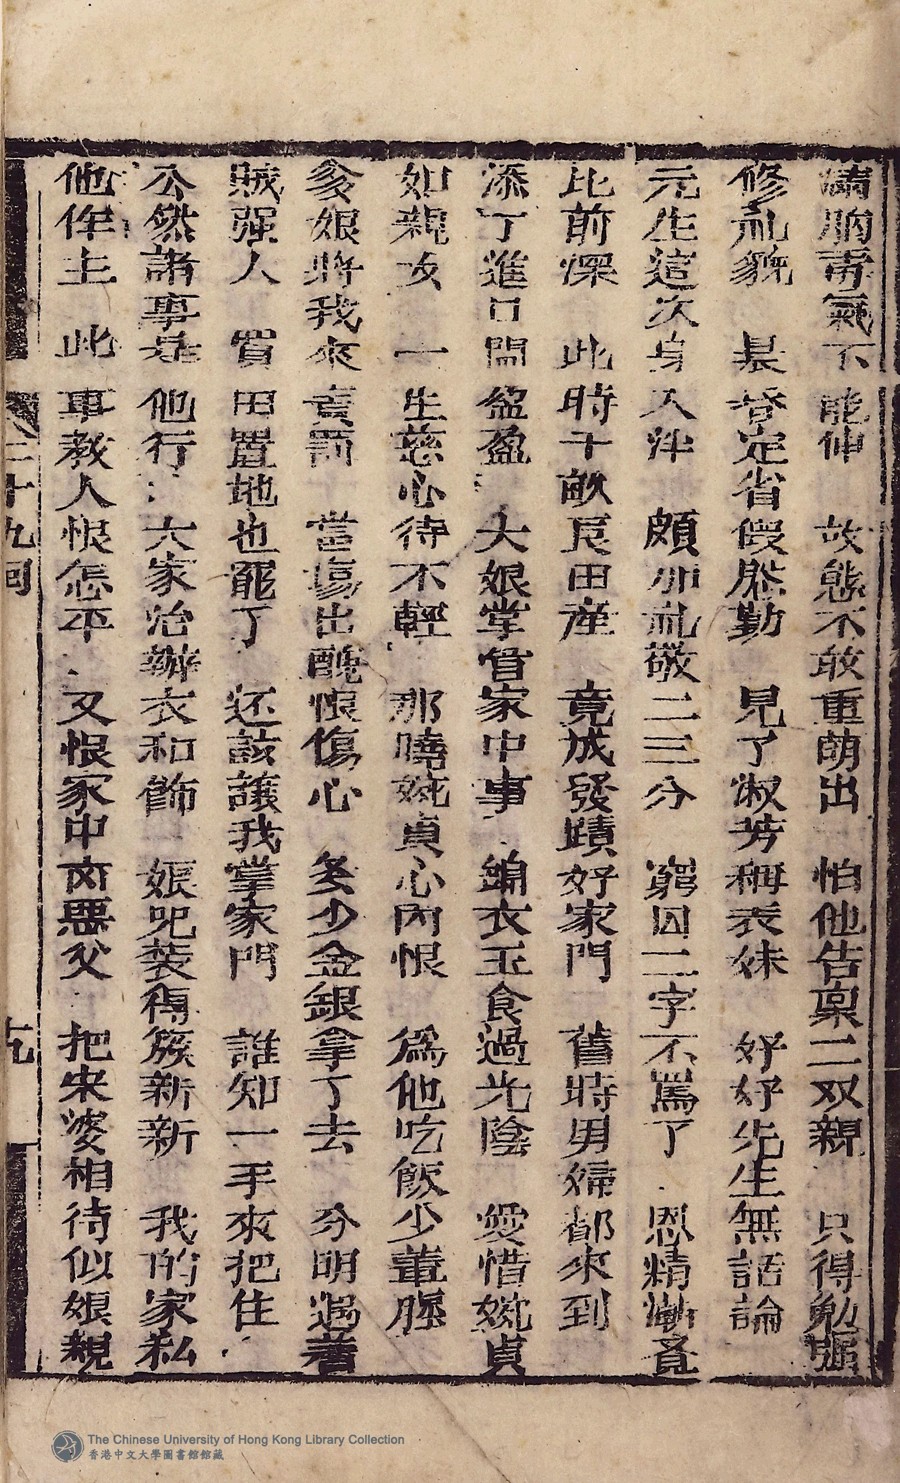 滿胸毒氣不能伸　故態不敢重萌出　怕他告禀二双親　只得勉强
修礼貌　晨昏定省假殷勤　見了淑芳稱表妹　好好先生無話論
元生這次身入泮　頗加礼敬二三分　窮囚二字不罵了　恩情漸覺
比前深　此時千畝良田産　竟成發蹟好家門　舊時男婦都來到
添丁進口鬧盈盈　大娘掌管家中事　錦衣玉食過光陰　愛惜婉貞
如親女　一生慈心待不輕　那曉婉貞心內恨　爲他吃飯少葷腥
爹娘將我來責罰　當塲出醜恨傷心　多少金銀拿了去　分明遇着
賊强人　買田置地也罷了　还該讓我掌家門　誰知一手來把住
公然諸事是他行　大家治辦衣和飾　娠兒裝得簇新新　我的家私
他作主　此事教人恨怎平　又恨家中內惡父　把宋婆相待似娘親
二十九回　九
The Chinese University of Hong Kong Library Collection
香港中文大學圖書館館藏